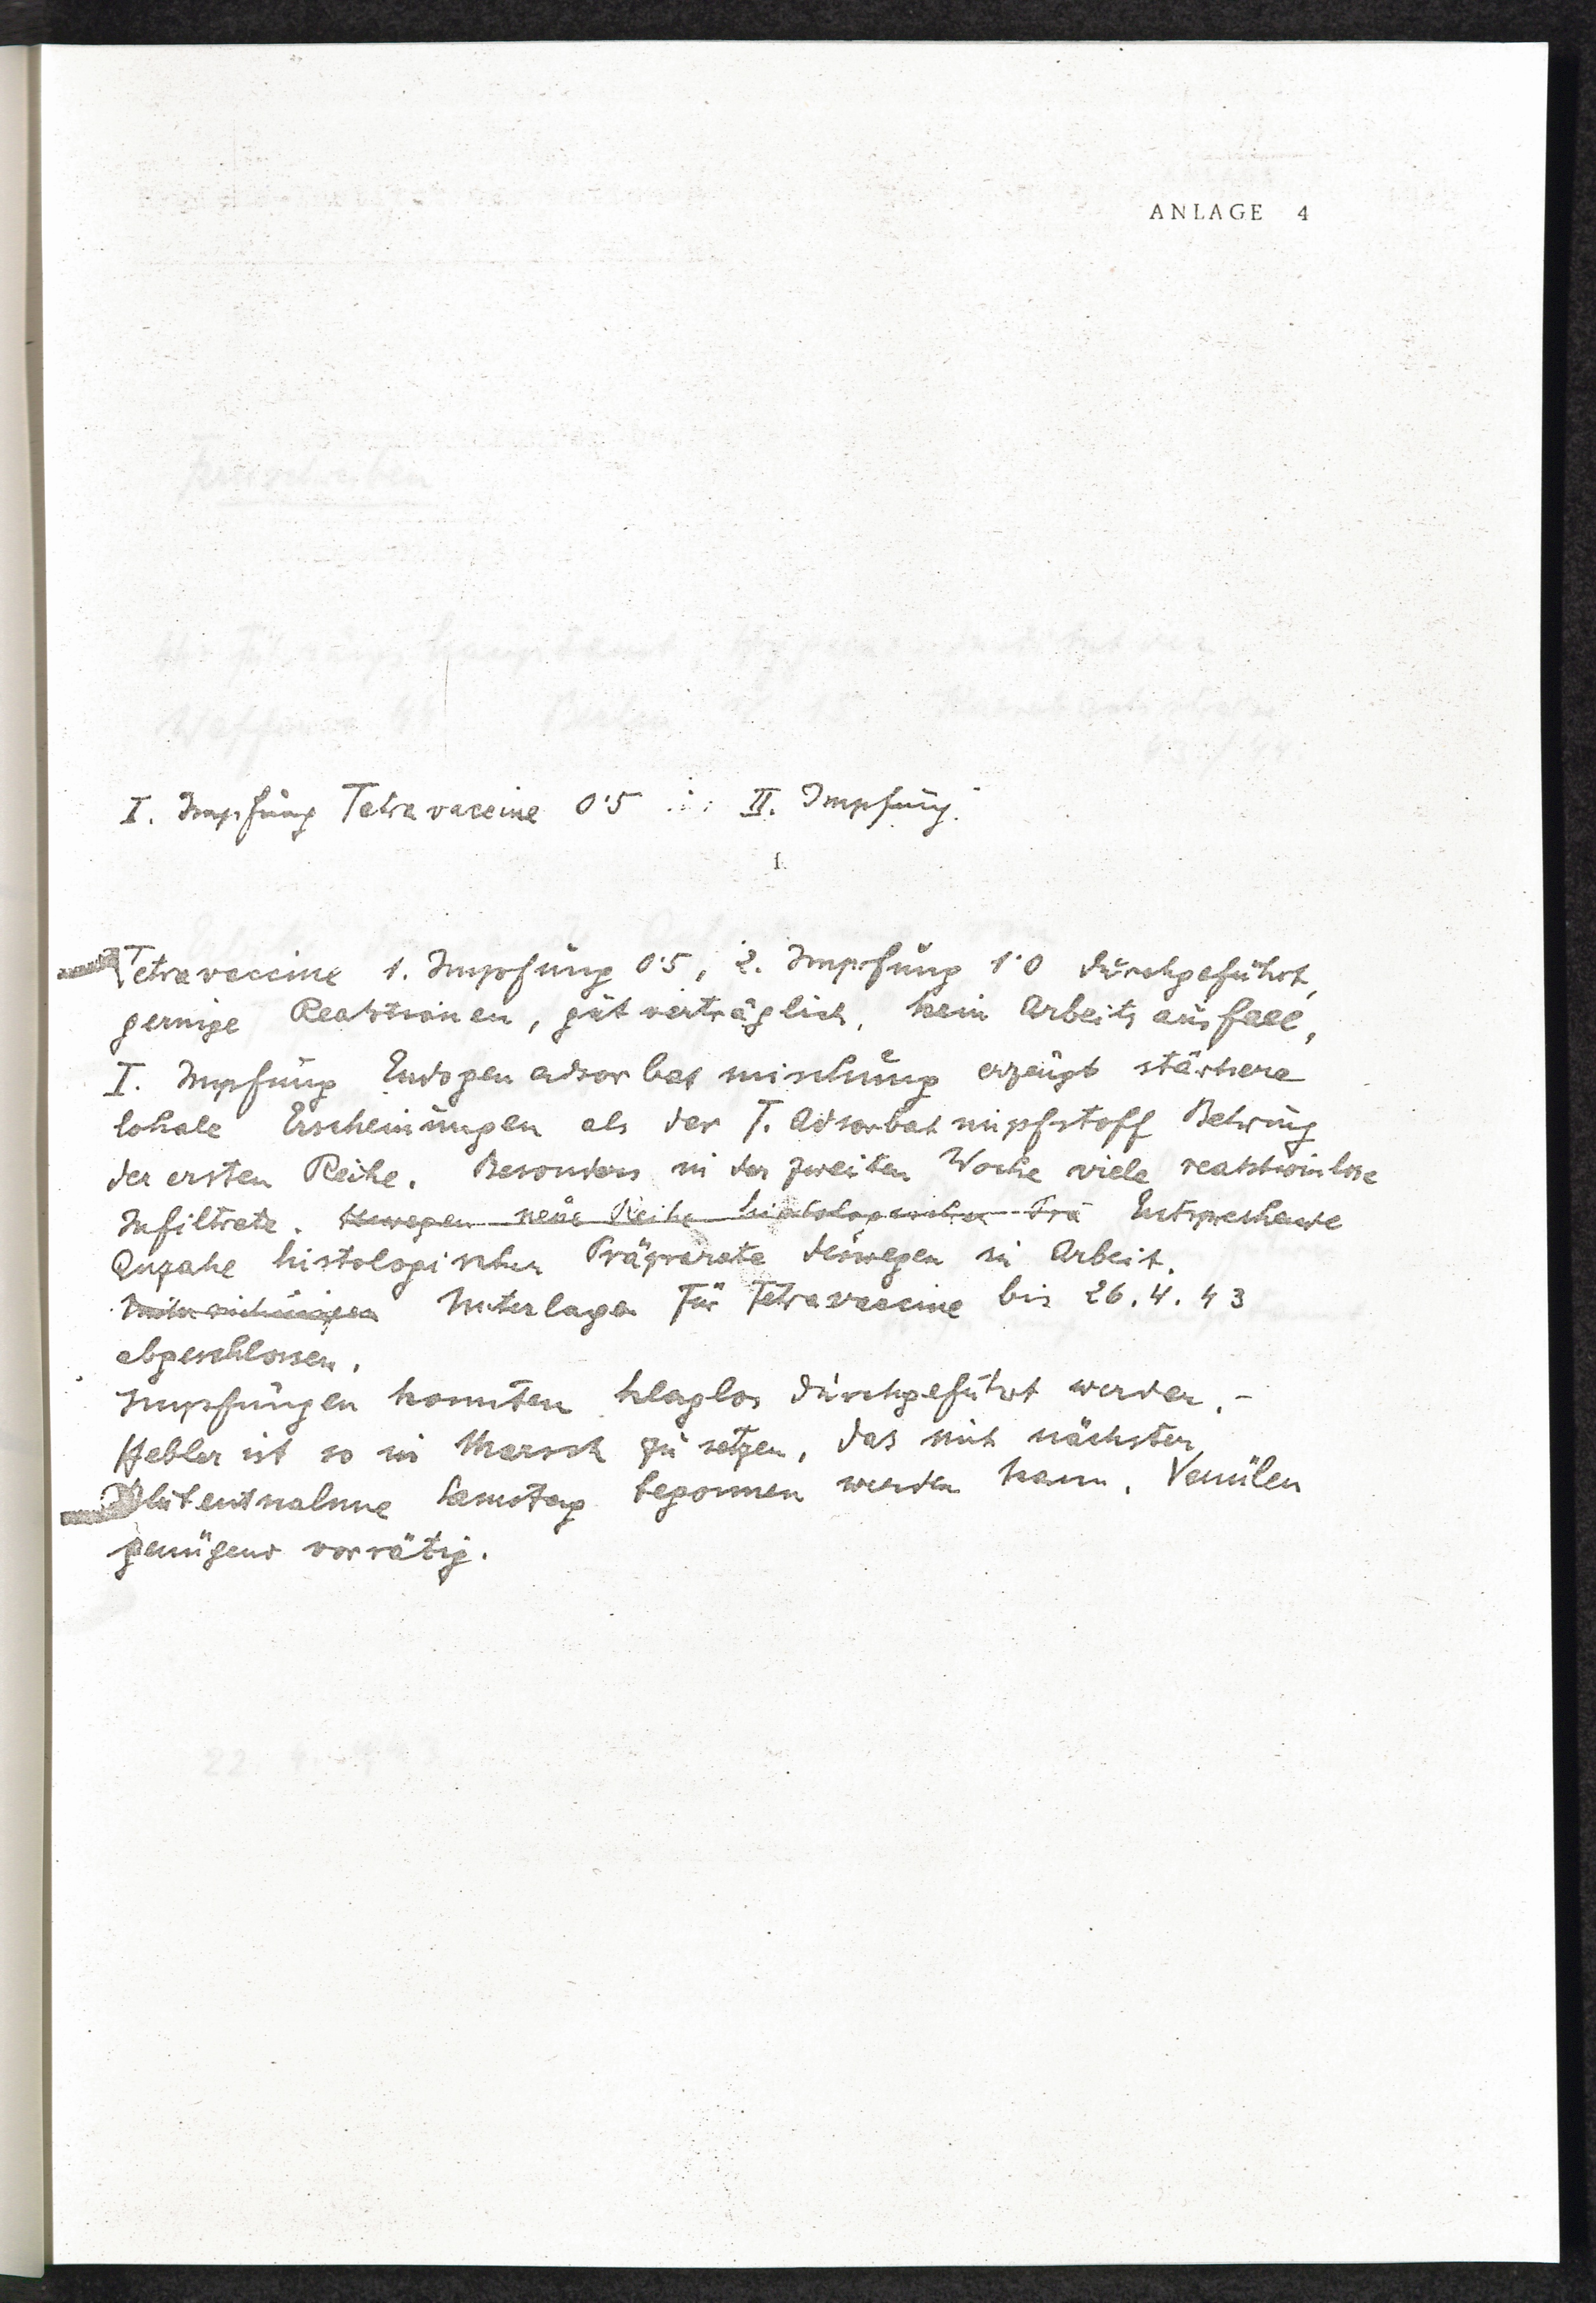 ANLAGE 4
I. Impfung Tetravaccine 0'5 II. Impfung.
1.
Tetravaccine 1. Impfung 0'5, 2. Impfung 1'0 durchgeführt,
geringe Reaktionen, gut verträglich, kein Arbeitsausfall,
I. Impfung Endogenadsorbatmischung erzeugt stärkere
lokale Erscheinungen als der T. Adsorbatimpfstoff Behring
der ersten Reihe. Besonders in der zweiten Woche viele reaktionslose
Infiltrate. neue Reihe histologischer Prä Entsprechende
Anzahl histologischer Präparate deswegen in Arbeit.
Unterlagen für Tetravaccine bis 26.4.43
abgeschlossen.
Impfungen konnten klaglos durchgeführt werden. -
Hebler ist so in Marsch zu setzen, das mit nächster
Blutentnahme Samstag begonnen werden kann. Venülen
genügend vorrätig.